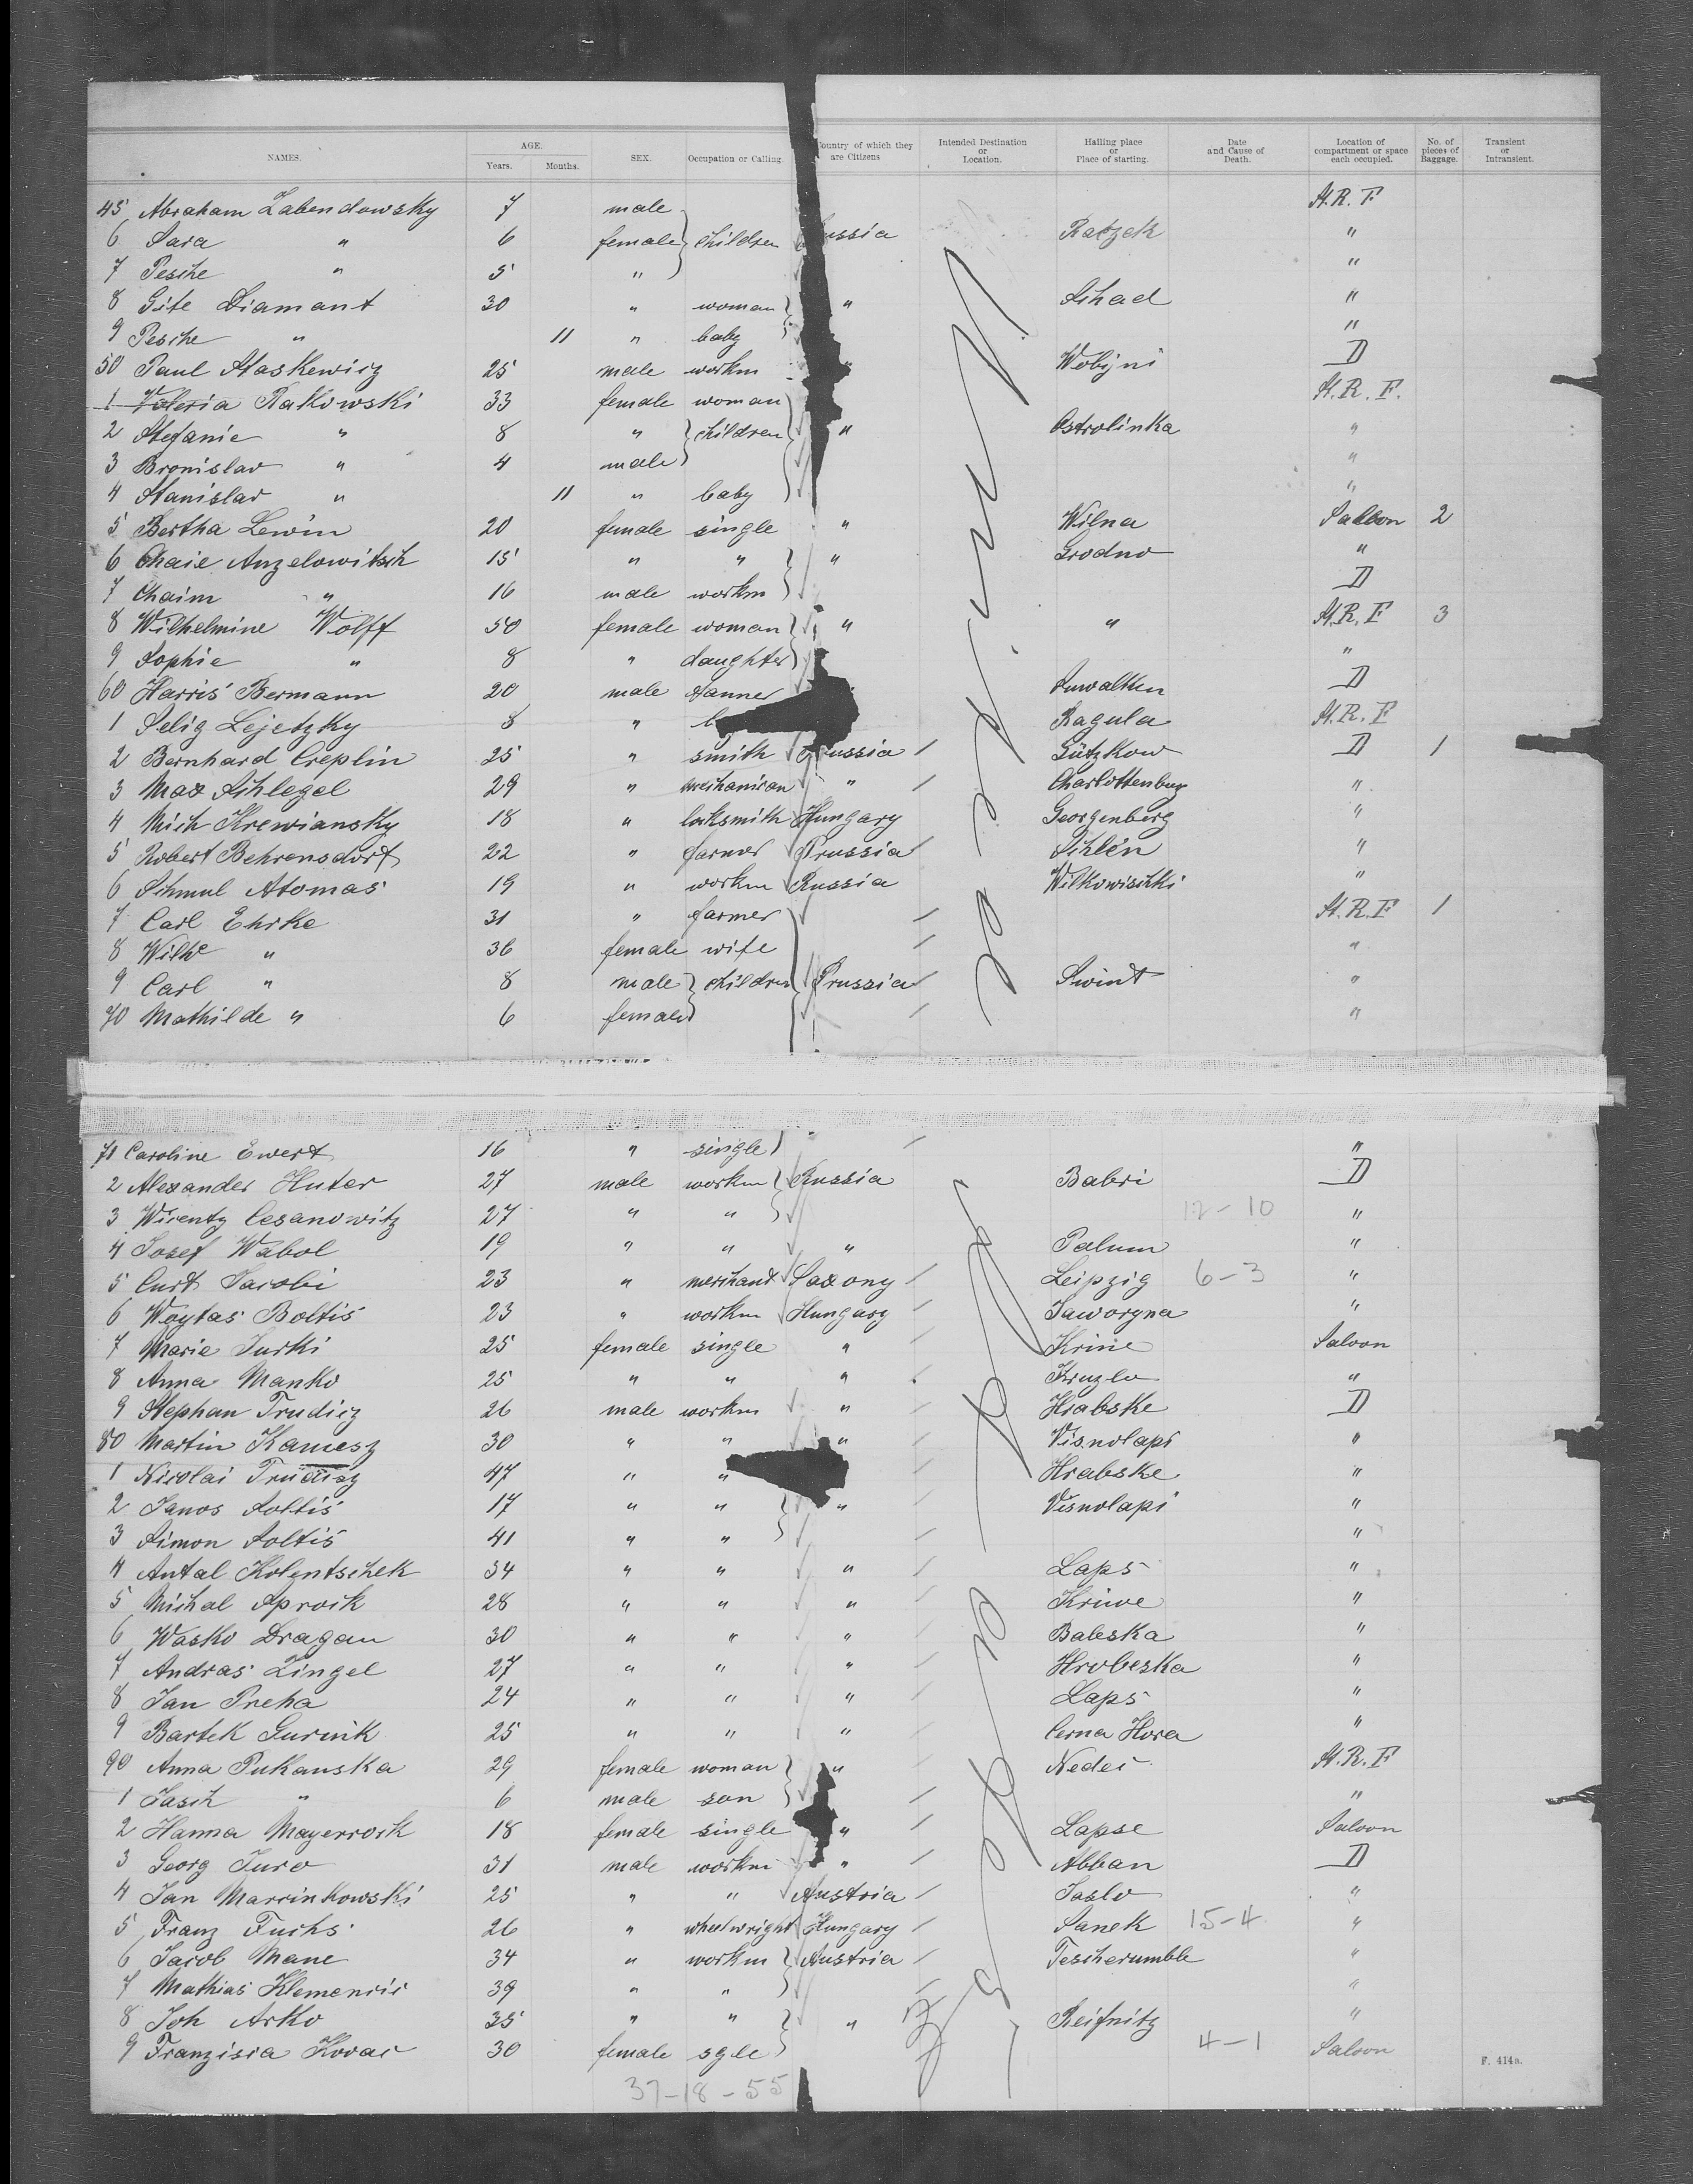 NAMES. AGE. Years. Months. SEX. Occupation or Calling. Country of which they are Citizens Intended Destination or Location. Hailing place or Place of starting. Date and Cause of Death. Location of compartment or space each occupied. No. of pieces of Baggage. Transient or Intransient.
45 Abraham Labendowsky 7 male St. R. F
6 Sara " 6 female children Russia Ratzek "
7 Pesche " 5 " "
8 Gite Diamant 30 " woman " Schad "
9 Pesche " 11 " baby "
50 Paul Staskewicz 25 male workm " Wobijni D
1 Valeria Rakowski 33 female woman St. R. F.
2 Stefanie " 8 " children " Ostrolinka "
3 Bronislav " 4 male "
4 Stanislav " 11 " baby "
5 Bertha Lewin 20 female single " Wilna Saloon 2
6 Chaie Anzelowitsch 15 " " " Grodno "
7 Chaim " 16 male workm D
8 Wilhelmine Wolff 50 female woman " " St. R. F 3
9 Sophie " 8 " daughter "
60 Harris Bermann 20 male tanner Suwalken D
1 Selig Lejetzky 8 " Ragula St. R. F
2 Bernhard Creplin 25 " smith Prussia Gützkow D 1
3 Max Schlegel 29 " mechanican " Charlottenburg "
4 Mich Krewiansky 18 " locksmith Hungary Georgenberg "
5 Robert Behrensdorf 22 " farmer Prussia Sihlen "
6 Schmul Atomas 19 " workm Russia Wilkowischki "
7 Carl Ehrke 31 " farmer St. R. F 1
8 Wilhe " 36 female wife "
9 Carl " 8 male children Prussia Swint "
70 Mathilde " 6 female "
71 Caroline Ewert 16 " single "
2 Alexander Huter 27 male workm Russia Babri D
3 Wicentz Cesanowitz 27 " " 12-10 "
4 Josef Wabol 19 " " " Palum "
5 Curt Jacobi 23 " merchant Saxony Leipzig 6-3 "
6 Woytas Boltis 23 " workm Hungary Jaworyna "
7 Marie Jurki 25 female single " Krine Saloon
8 Anna Manko 25 " " " Kruzlo "
9 Stephan Trudicz 26 male workm " Hrabske D
80 Martin Kamesz 30 " " " Visnolapi "
1 Nicolai Trudisz 47 " " Hrabske "
2 Janos Soltis 17 " " " Visnolapi "
3 Simon Soltis 41 " " "
4 Antal Kolentschek 34 " " " Laps "
5 Michal Sprock 28 " " " Kriwe "
6 Wasko Dragan 30 " " " Baleska "
7 Andras Zingel 27 " " " Hrobeska "
8 Jan Preha 24 " " " Laps "
9 Bartek Gurnik 25 " " " Cerna Hora "
90 Anna Pukanska 29 female woman " Nedei St. R. F
1 Jasch " 6 male son "
2 Hanna Mayercock 18 female single " Lapse Saloon
3 Georg Juro 31 male workm " Abban D
4 Jan Marcinkowski 25 " " Austria Jaslo "
5 Franz Fuchs 26 " wheelwright Hungary Sanek 15-4 "
6 Jacob Mane 34 " workm Austria Tescherumble "
7 Mathias Klemencic 39 " " "
8 Joh Arko 35 " " " Reifnitz "
9 Franzisca Kovac 30 female sgle 4-1 Saloon
37-18-55
F. 414a.